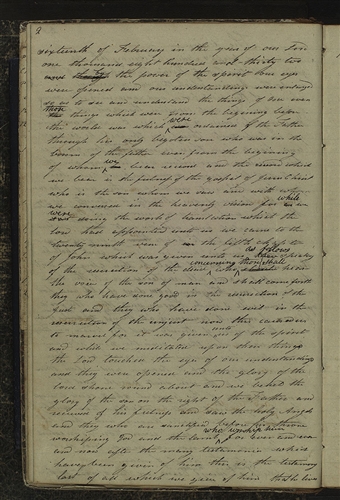 2
sixteenth of February in the year of our Lord
one thousand eight hundred and thirty two
through the power of the spirit our eyes
were opened and our understandings were enlarged
so as to see and understand the things of God even
those
things which were from the begining before
were
the world was which ordained of the Father
through his only begotten son who was in the
bosom of the father even from the beginning
we
of whom bear record and the record which
we bear is the fulness of the gospel of Jesus Christ
who is the son whom we saw and with whom
while
we conversed in the heavenly vision for
were
doing the work of translation which the
lord had appointed unto us we came to the
twenty ninth verse of the fifth chapter
as follows
of John which was given unto us speaking
concerning those shall
of the resurrection of the dead who hear
the voice of the son of man and shall come forth
they who have done good in the resurrection of the
just and they who have done evil in the
resurrection of the unjust now this caused us
unto
to marvel for it was given us of the spirit
and while we meditated upon these things
the Lord touched the eyes of our understandings
and they were opened and the glory of the
lord shone round about and we beheld the
glory of the son on the right of the Father and
received of his fulness and saw the holy Angels
and they who are sanctified before his throne
who worship him
worshiping God and the lamb for ever and ever
and now after the many testimonies which
have been given of him this is the testimony
last of all which we give of him that he lives